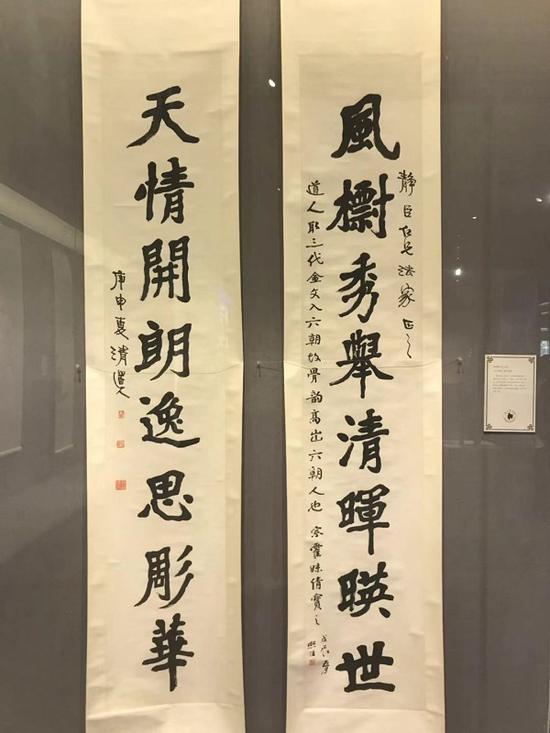 靜臣仁兄法家正之
風櫥秀舉清暉暎世
道人取三代金文入六朝故骨韵高出六朝人也
天情開朗逸思彫華
庚申夏清道人